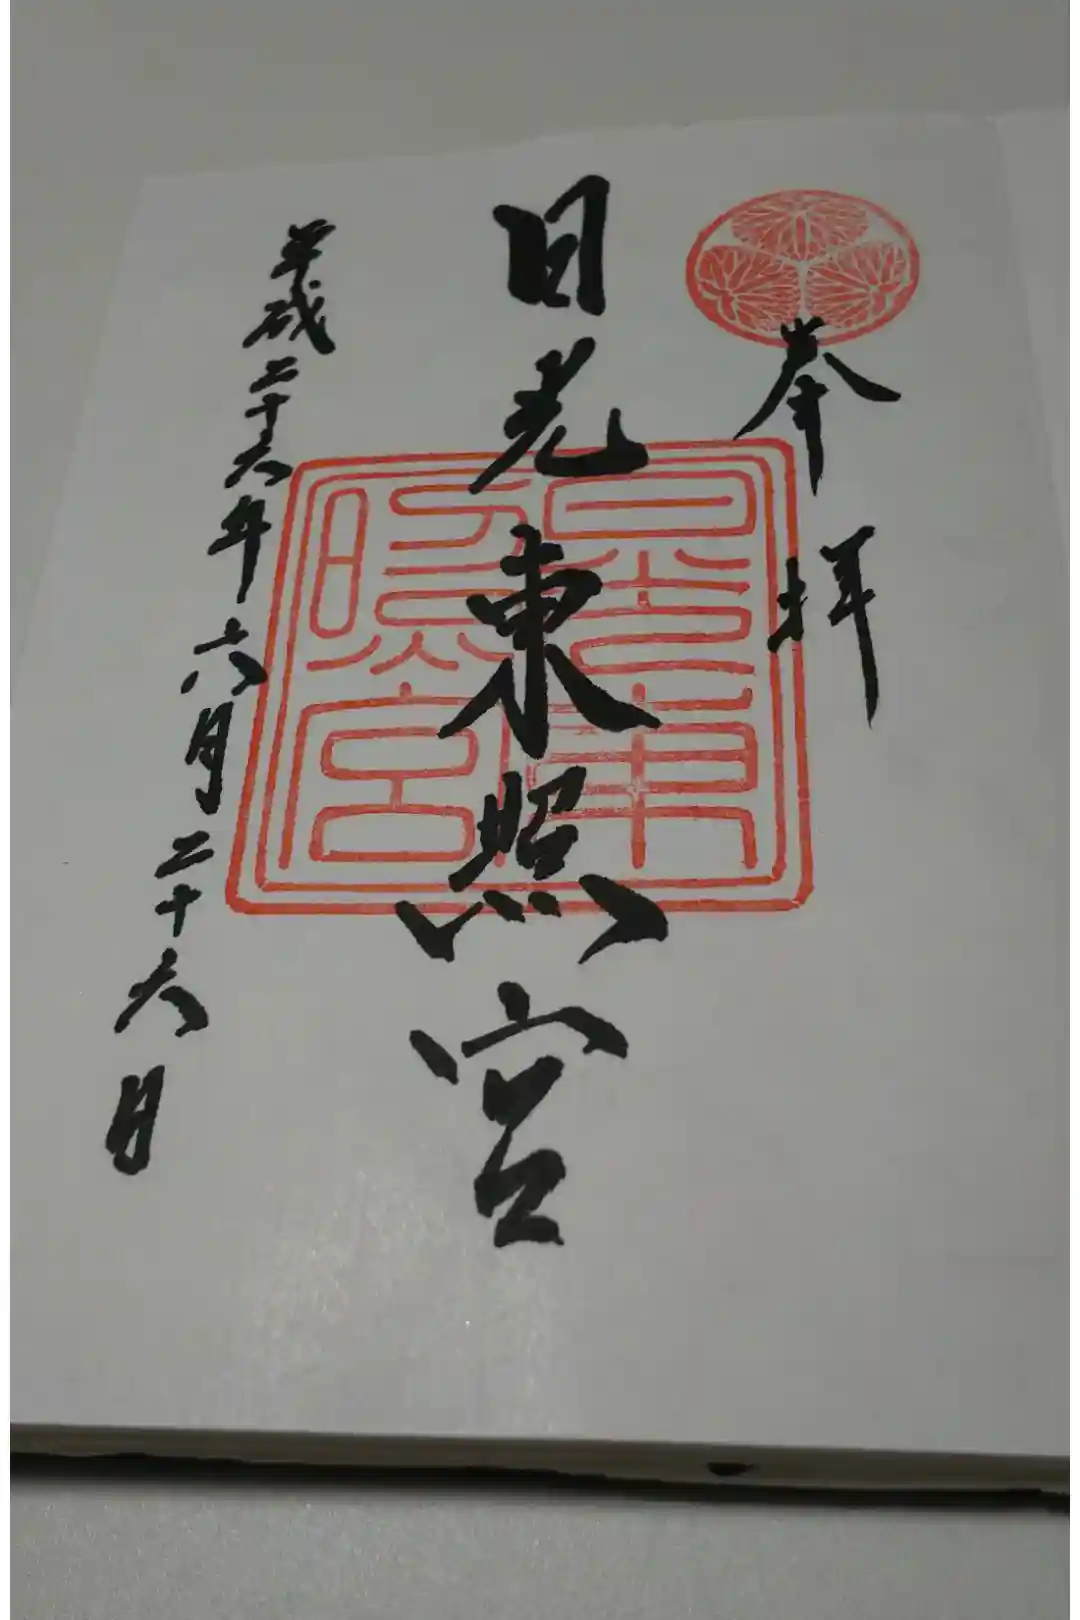 奉拝
日光東照宮
平成二十六年六月二十六日
日光東
照宮